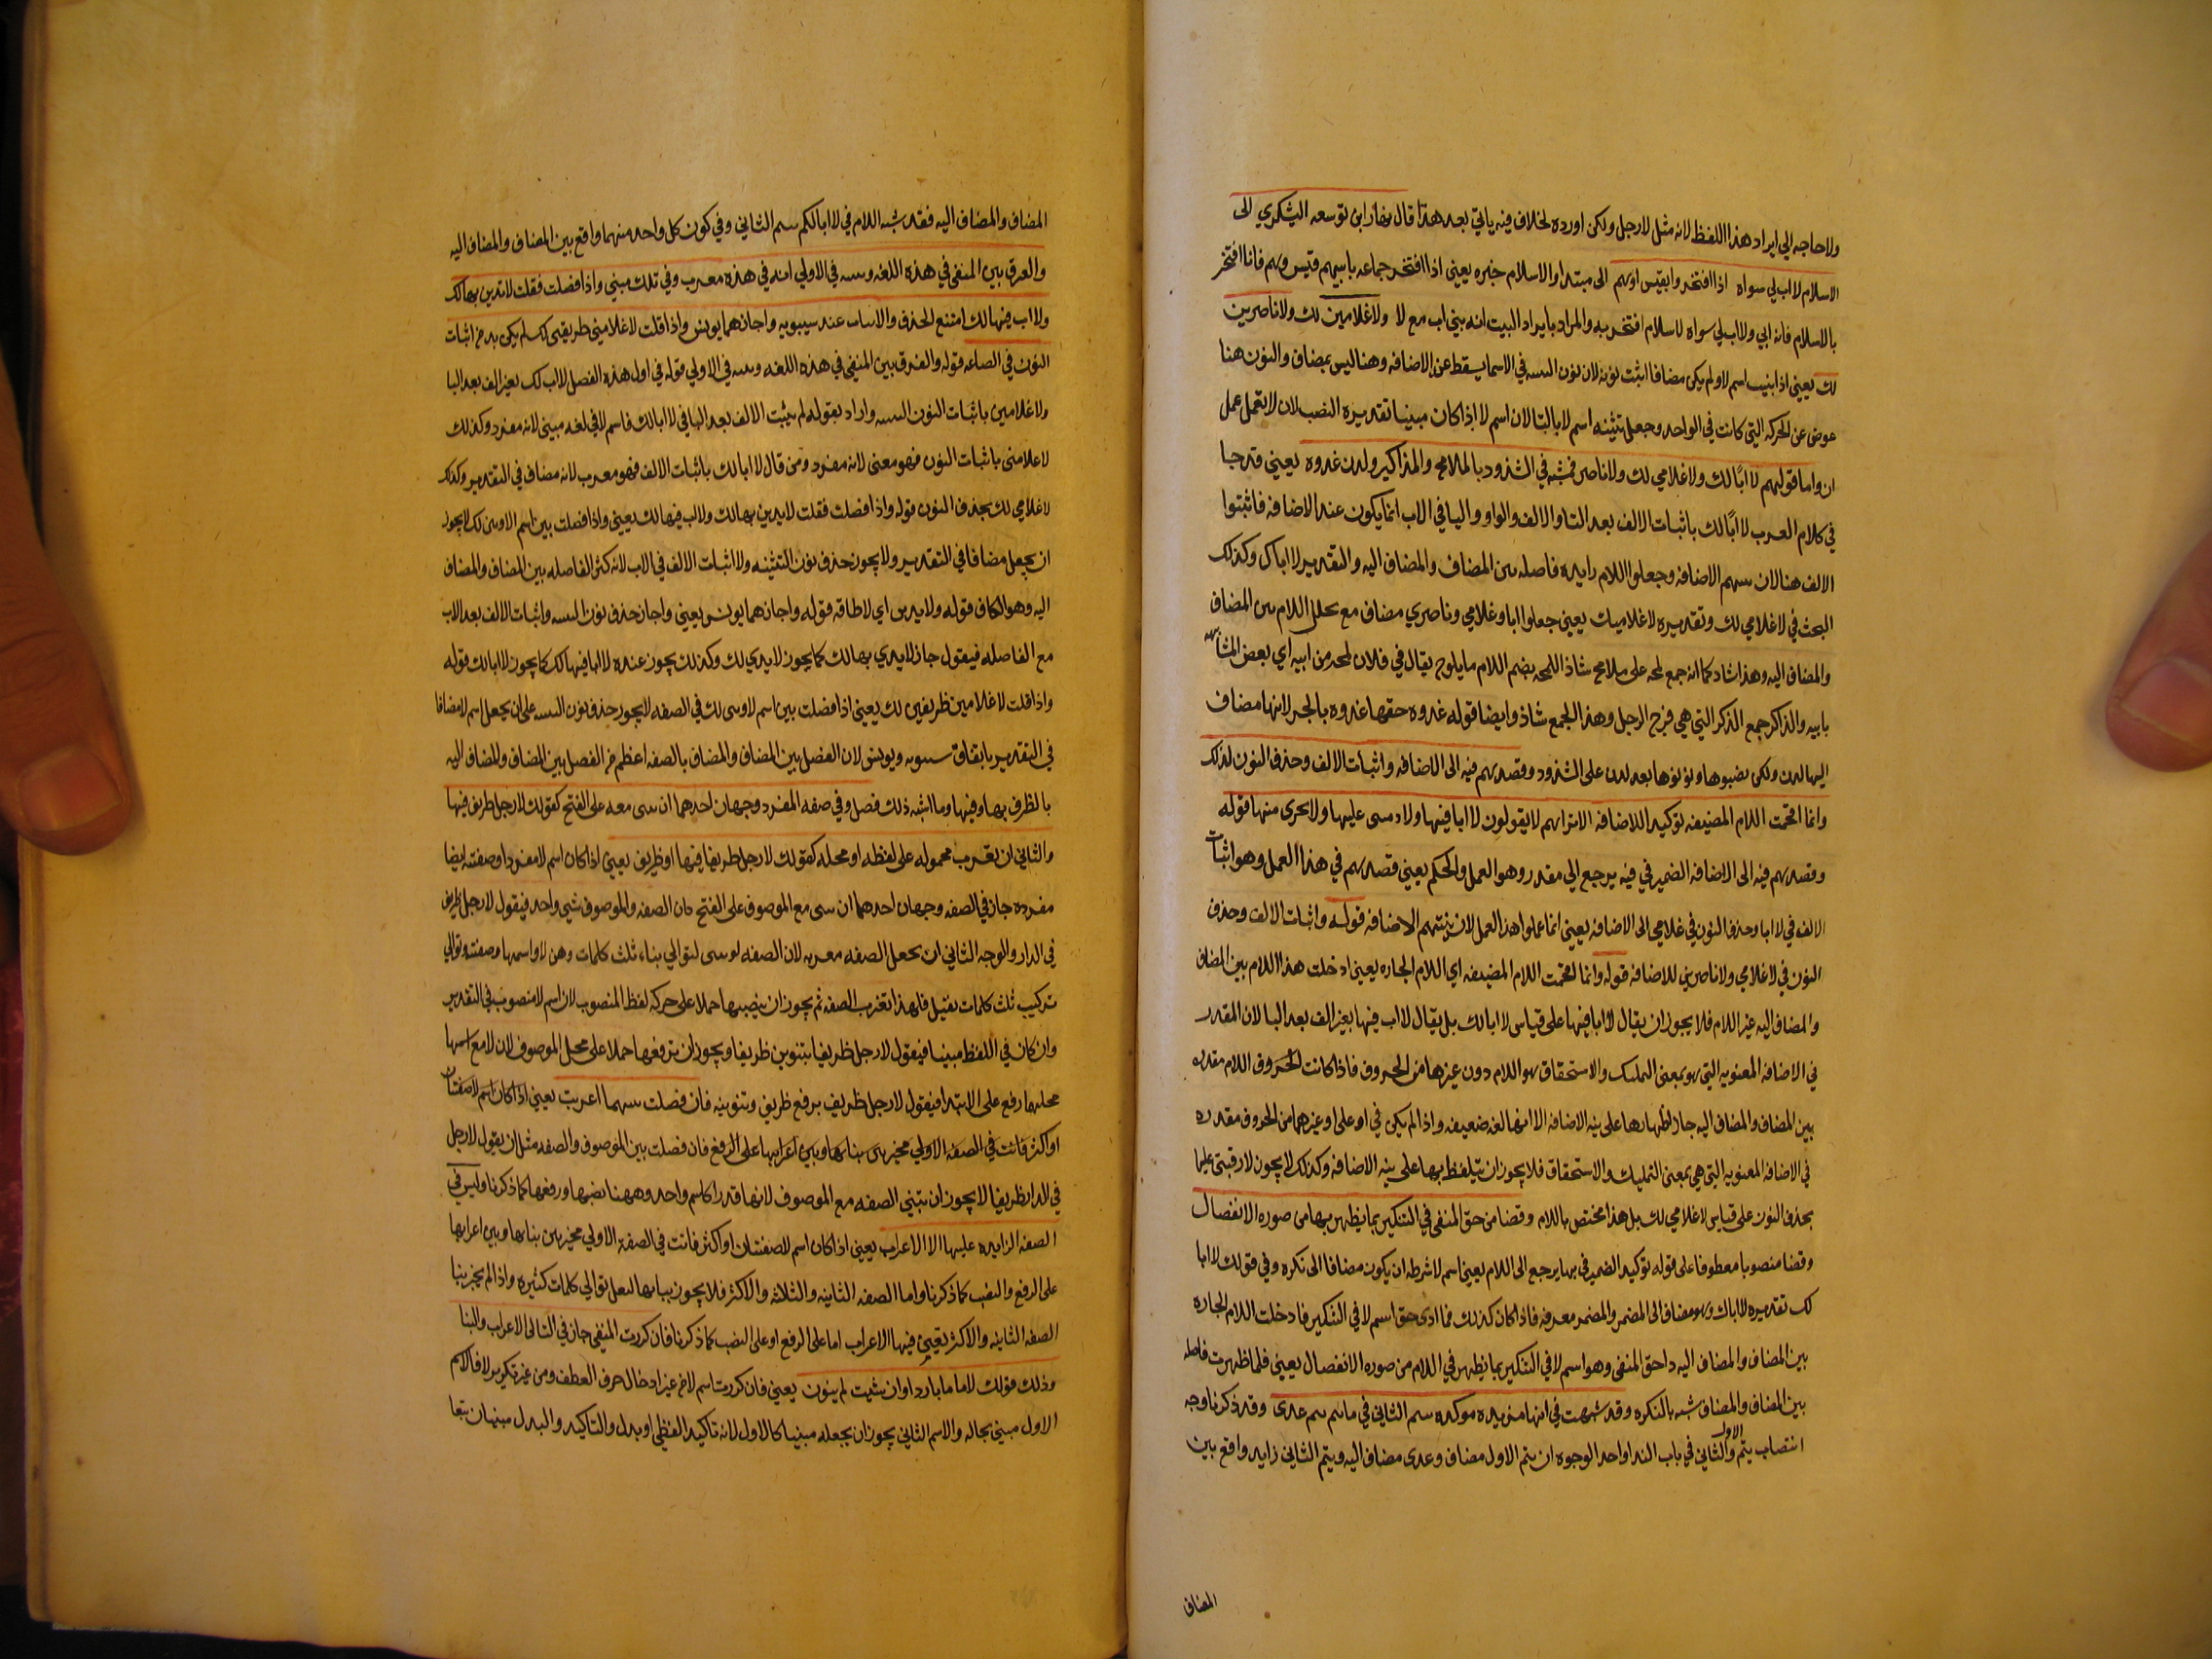 ولا حاجه الي ايراد هذا اللفظ لانه مثل لا رجل ولكن اورده لخلاف فيه ياتي بعد هذا قال نهار ابن توسعه اليشكري الى
الاسلام لا اب لي سواه اذا افتخروا بقيس او تميم الى مبتدا والاسلام خبره يعني اذا افتخر جماعه بابيهم قيس وتميم فانا افتخر
بالاسلام فانه ابي ولا اب لي سواه لاسلام افتخر به والمراد بايراد البيت انه بني اب مع لا ولا غلامين لك ولا ناصرين
لك يعني اذا بنيت اسم لا ولم يكن مضافا اثبت نونه لان نون التثنيه في الاسما يسقط عن الاضافه وهنا ليس بمضاف والنون هنا
عوض عن الحركه التي كانت في الواحد وجعل تثنيه اسم لا باليا لان اسم لا اذا كان مبنيا تقديره النصب لان لا يعمل عمل
ان واما قولهم لا ابًا لك ولا غلامي لك ولا ناصر فمشبه في الشذود بالملامح والمذاكير ولدن غدوه يعني قد جا
في كلام العرب لا ابًا لك باثبات الالف بعد البا والالف والواو واليا في الاب انما يكون عند الاضافه فاثبتوا
الالف هنا لان الاضافه وجعلوا اللام زايده فاصله بين المضاف والمضاف اليه والتقدير لا اباك وكذلك
البحث في لا غلامي لك وتقديره لا غلاميك يعني جعلوا ابا وغلامي وناصري مضاف مع تخلل اللام بين المضاف
والمضاف اليه وهذا شاد كما انه جمع لمحه على ملامح شاذ اللمحه بضم اللام ما يلوح يقال في فلان لمحه من ابيه اي بعض المشابهه
بابيه والمذاكر جمع الذكر التي هي فرج الرجل وهذا الجمع شاذ وايضا قوله غدوه حقها غدوه بالجر لانها مضاف
اليها لدن ولكن نصبوها ونونوها بعد لدن على الشذود وقصدهم فيه الى الاضافه واثبات الالف وحذف النون لذلك
وانما اقحمت اللام المضيفه توكيدا للاضافه الا تراهم لا يقولون لا ابا فيها ولا عليها ولا منها قوله
وقصدهم فيه الى الاضافه الضمير في فيه يرجع الي مقدر وهو العمل والحكم يعني قصدهم في هذا العمل وهو اثبات
الالف في لا ابا وحذف النون في غلامي الى الاضافه يعني انما عملوا هذا العمل لان نيتهم الاضافه قوله واثبات الالف وحذف
النون في لا غلامي ولا ناصرين للاضافه قوله وانما اقحمت اللام المضيفه اي اللام الجاره يعني ادخلت هذا اللام بين المضاف
والمضاف اليه غير اللام فلا يجوز ان يقال لا ابا فيها على قياس لا ابا لك بل يقال لا اب فيها بغير الف بعد البا لان المقدر
في الاضافه المعنويه التي هو بمعنى التمليك والاستحقاق هو اللام دون غيرها من الحروف فاذا كانت الحروف اللام مقدره
بين المضاف والمضاف اليه جاز اظهارها على نيه الاضافه الا انها لغه ضعيفه واذا لم يكن في او على او غيرهما من الحروف مقدره
في الاضافه المعنويه التي هي بمعنى التمليك والاستحقاق فلا يجوز ان يتلفظ بها على نيه الاضافه وكذلك لا يجوز لا رقبتي عليها
بحذف النون على قياس لا غلامي لك بل هذا مختص باللام وقضا من حق المنفي في التنكير بما يظهر بها من صوره الانفصال
وقضا منصوبا معطوفا على قوله توكيد الضمير في بها يرجع الى اللام يعني اسم لا شرطه ان يكون مضافا الى نكره وفي قولك لا ابا
لك تقديره لا اباك وهو مضاف الى المضمر والمضمر معرفه فاذا كان كذلك فما ادى حق اسم لا في التنكير فادخلت اللام الجاره
بين المضاف والمضاف اليه داحق المنفي وهو اسم لا في التنكير بما يظهر في اللام من صوره الانفصال يعني فلما ظهرت فاصله
بين المضاف والمضاف شبه بالنكره وقد شبهت في انها مزيده موكده بتيم الثاني في يا تيم تيم عدى وقد ذكرنا وجه
انتصاب يتم الاول والثاني في باب الندا واحد الوجوه ان يتم الاول مضاف وعدى مضاف اليه ويتم الثاني زايد واقع بين
المضاف
المضاف والمضاف اليه فقد شبه اللام في لا ابا لكم بتيم الثاني وفي كون كل واحد منهما واقع بين المضاف والمضاف اليه
والفرق بين المنفي في هذه اللغه وبينه في الاولي انه في هذه معرب وفي تلك مبني واذا فصلت فقلت لا يدين بها لك
ولا اب فيها لك امتنع الحذف والاثبات عند سيبويه واجازهما يونس واذا قلت لا غلامين ظريفين لك لم يكن بد من اثبات
النون في الصفه قوله والفرق بين المنفي في هذه اللغه وبينه في الاولي قوله في اول هذه الفصل لا اب لك بغير الف بعد البا
ولا غلامين باثبات النون التثنيه واراد بقوله لم يثبت الالف بعد البا في لا ابا لك فاسم لا في لغه مبني لانه مفرد وكذلك
لا غلامني باثبات النون فهو معنى لانه مفرد ومن قال لا ابا لك باثبات الالف فهو معرب لانه مضاف في التقدير وكذلك
لا غلامي لك بحذف النون قوله واذا فصلت فقلت لا يدين بها لك ولا اب فيها لك يعني واذا فصلت بين اسم لا وبين لك لا يجوز
ان يجعل مضافا في التقدير ولا يجوز حذف نون التثنيه ولا اثبات الالف في الاب لانه كثر الفاصله بين المضاف والمضاف
اليه وهو الكاف قوله ولا يدين اي لا طاقه قوله واجازهما يونس يعني واجاز حذف نون التثنيه واثبات الالف بعد الاب
مع الفاصله فيقول جاز لا يدي بها لك كما يجوز لا يدي لك وكذلك يجوز عنده لا ابا فيها لك كما يجوز لا ابا لك قوله
واذا قلت لا غلامين ظريفين لك يعني اذا فصلت بين اسم لا وبين لك في الصفه لا يجوز حذف نون التثنيه على ان يجعل اسم لا مضافا
في التقدير باتفاق سيبويه ويونس لان الفصل بين المضاف والمضاف بالصفه اعظم من الفصل بين المضاف والمضاف اليه
بالظرف بها وفيها وما اشبه ذلك فصل وفي صفه المفرد وجهان احدهما ان تبنى معه على الفتح كقولك لا رجل ظريف فيها
والثاني ان تعرب محموله على لفظه او محله كقولك لا رجل ظريفا فيها او ظريف يعني اذا كان اسم لا مفردا وصفته ايضا
مفرده جاز في الصفه وجهان احدهما ان تبنى مع الموصوف على الفتح كان الصفه والموصوف شي واحد فيقول لا رجل ظريف
في الدار والوجه الثاني ان تجعل الصفه معربه لان الصفه لو بنى لتوالي بناء ثلث كلمات وهن لا واسمها وصفته وتوالي
تركيب ثلث كلمات ثقيل فلهذا تعرب الصفه ثم يجوز ان ينصبها حملا على حركه لفظ المنصوب لان اسم لا منصوب في التقدير
وان كان في اللفظ مبنيا فيقول لا رجل ظريفا بتنوين ظريفا ويجوز ان ترفعها حملا على محل الموصوف لان لا مع اسمها
محلهما رفع على الابتدا فيقول لا رجل ظريف برفع ظريف وتنوينه فان فصلت بينهما اعربت يعني اذا كان اسم لا صفتان
او اكثر فانت في الصفه الاولي مخير بين بناها وبين اعرابها على الرفع فان فصلت بين الموصوف والصفه مثل ان يقول لا رجل
في الدار ظريفا لا يجوز ان تبنى الصفه مع الموصوف لانها قدرا كاسم واحد وههنا نصبها ورفعها كما ذكرنا وليس في
الصفه الزايده عليها الا الاعراب يعني اذا كان اسم لا صفتان او اكثر فانت في الصفه الاولي مخير بين بناها وبين اعرابها
على الرفع والنصب كما ذكرنا واما الصفه الثانيه والثلاثه والاكثر فلا يجوز بناها لتوالي كلمات كثيره واذا لم يجز بنا
الصفه الثانيه والاكثر تعين فيها الاعراب اما على الرفع او على النصب كما ذكرنا فان كررت المنفي جاز في الثاني الاعراب والبنا
وذلك قولك لا ما ما باردا وان شيت لم ينون يعني فان كررت اسم لا من غير ادخال حرف العطف ومن غير تكرير لا فالاسم
الاول مبني بحاله والاسم الثاني يجوز ان يجعله مبنيا كالاول لانه تاكيد لفظي او بدل والتاكيد والبدل